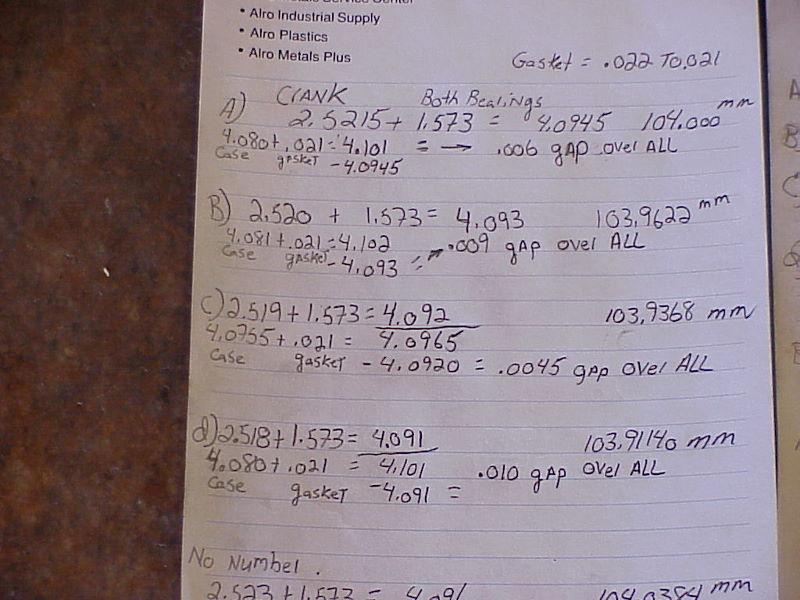 • Alro Industrial Supply
• Alro Plastics
• Alro Metals Plus
Gasket = .022 To .021
A) CRANK Both Bearings
2.5215 + 1.573 = 4.0945 104.000 mm
4.080 + .021 = 4.101 = → .006 gAP over ALL
Case gasket - 4.0945
B) 2.520 + 1.573 = 4.093 103.9622 mm
4.081 + .021 = 4.102 .009 gap over ALL
Case gasket - 4.093 =
C) 2.519 + 1.573 = 4.092 103.9368 mm
4.0755 + .021 = 4.0965
Case gasket - 4.0920 = .0045 gap over ALL
d) 2.518 + 1.573 = 4.091 103.9114o mm
4.080 + .021 = 4.101 .010 gap over ALL
Case gasket - 4.091 =
No Number .
2.523 + 1.573 = 104.0384 mm